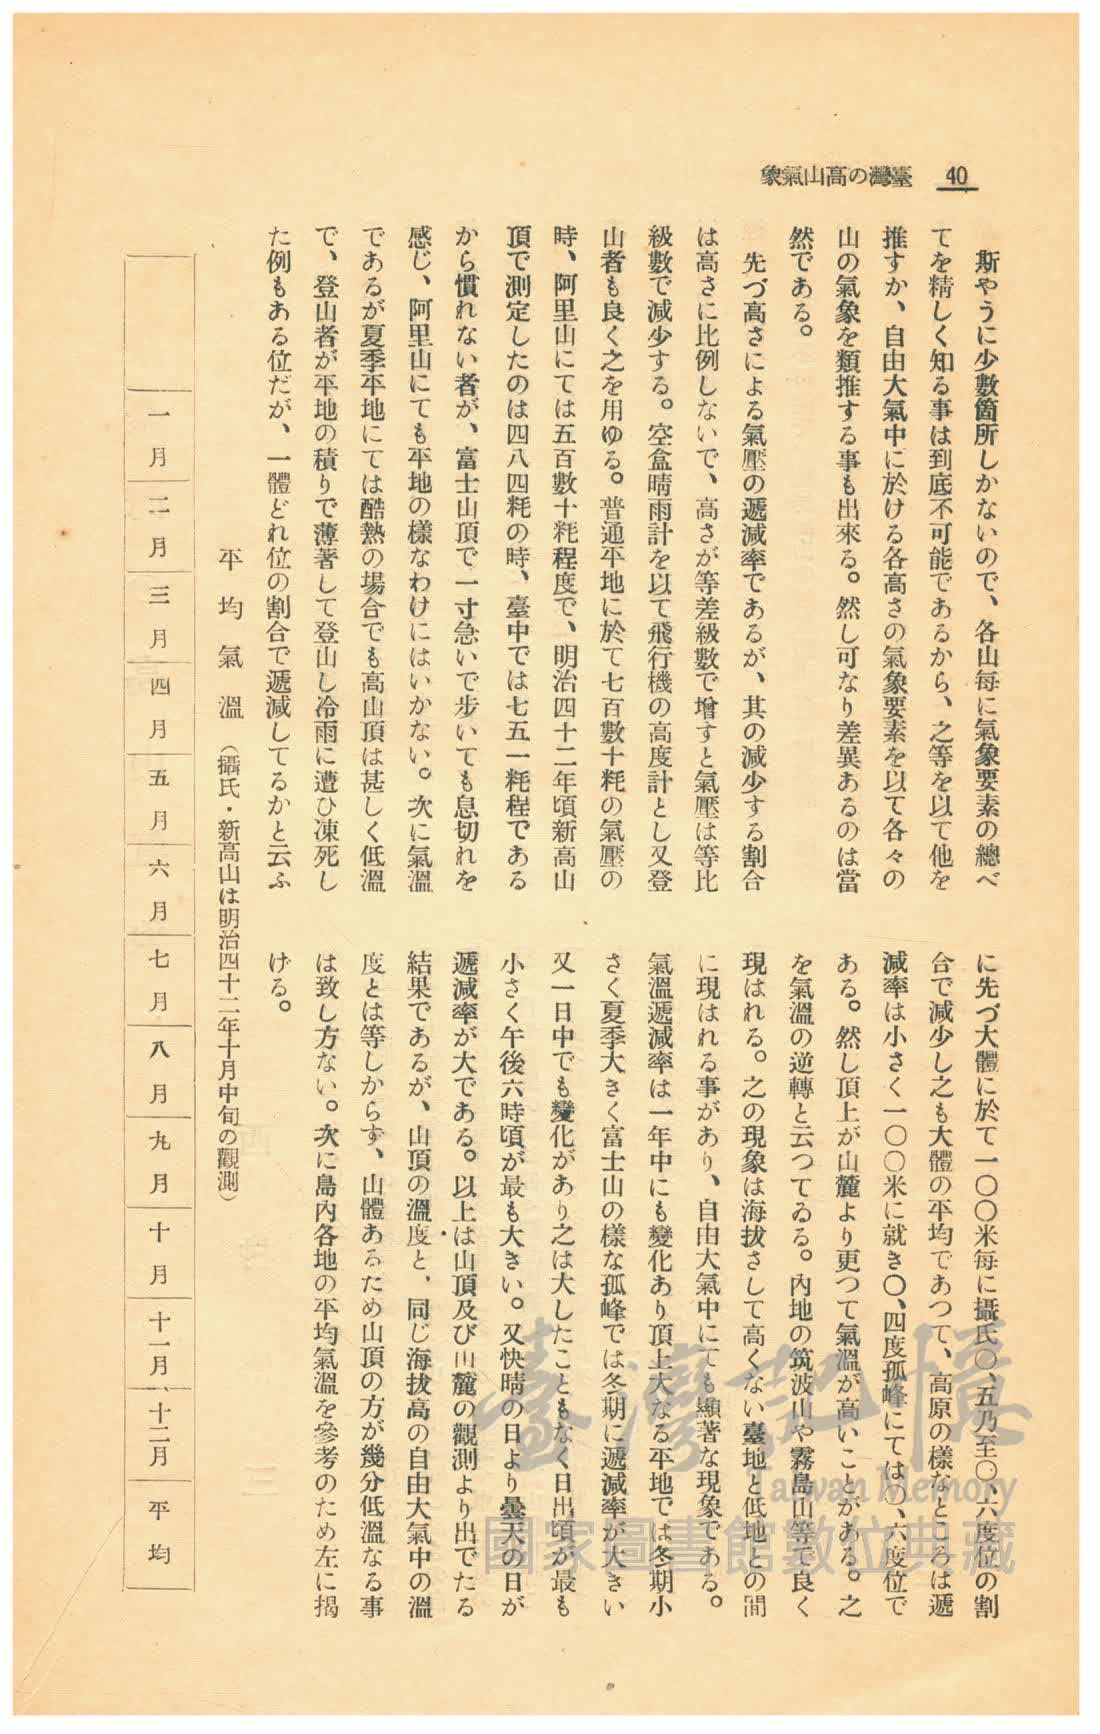 臺灣の高山氣象　40
斯やうに少數箇所しかないので、各山每に氣象要素の總べ
てを精しく知る事は到底不可能であるから、之等を以て他を
推すか、自由大氣中に於ける各高さの氣象要素を以て各々の
山の氣象を類推する事も出來る。然し可なり差異あるのは當
然である。
先づ高さによる氣壓の遞減率であるが、其の減少する割合
は高さに比例しないで、高さが等差級數で增すと氣壓は等比
級數で減少する。空盒晴雨計を以て飛行機の高度計とし又登
山者も良く之を用ゆる。普通平地に於て七百數十粍の氣壓の
時、阿里山にては五百數十粍程度で、明治四十二年頃新高山
頂で測定したのは四八四粍の時、臺中では七五一粍程である
から慣れない者が、富士山頂で一寸急いで步いても息切れを
感じ、阿里山にても平地の樣なわけにはいかない。次に氣溫
であるが夏季平地にては酷熱の場合でも高山頂は甚しく低溫
で、登山者が平地の積りで薄著して登山し冷雨に遭ひ凍死し
た例もある位だが、一體どれ位の割合で遞減してるかと云ふ
に先づ大體に於て一〇〇米每に攝氏〇、五乃至〇、六度位の割
合で減少し之も大體の平均であつて、高原の樣なところは遞
減率は小さく一〇〇米に就き〇、四度孤峰にては〇、六度位で
ある。然し頂上が山麓より更つて氣溫が高いことがある。之
を氣溫の逆轉と云つてゐる。內地の筑波山や霧島山等で良く
現はれる。之の現象は海拔さして高くない臺地と低地との間
に現はれる事があり、自由大氣中にても顯著な現象である。
氣溫遞減率は一年中にも變化あり頂上大なる平地では冬期小
さく夏季大きく富士山の樣な孤峰では冬期に遞減率が大きい
又一日中でも變化があり之は大したこともなく日出頃が最も
小さく午後六時頃が最も大きい。又快晴の日より曇天の日が
遞減率が大である。以上は山頂及び山麓の觀測より出でたる
結果であるが、山頂の溫度と、同じ海拔高の自由大氣中の溫
度とは等しからず、山體あるため山頂の方が幾分低溫なる事
は致し方ない。次に島內各地の平均氣溫を參考のため左に揭
げる。
平均氣溫（攝氏・新高山は明治四十二年十月中旬の觀測）
一月　二月　三月　四月　五月　六月　七月　八月　九月　十月　十一月　十二月　平均
臺灣記憶
Taiwan Memory
國家圖書館數位典藏